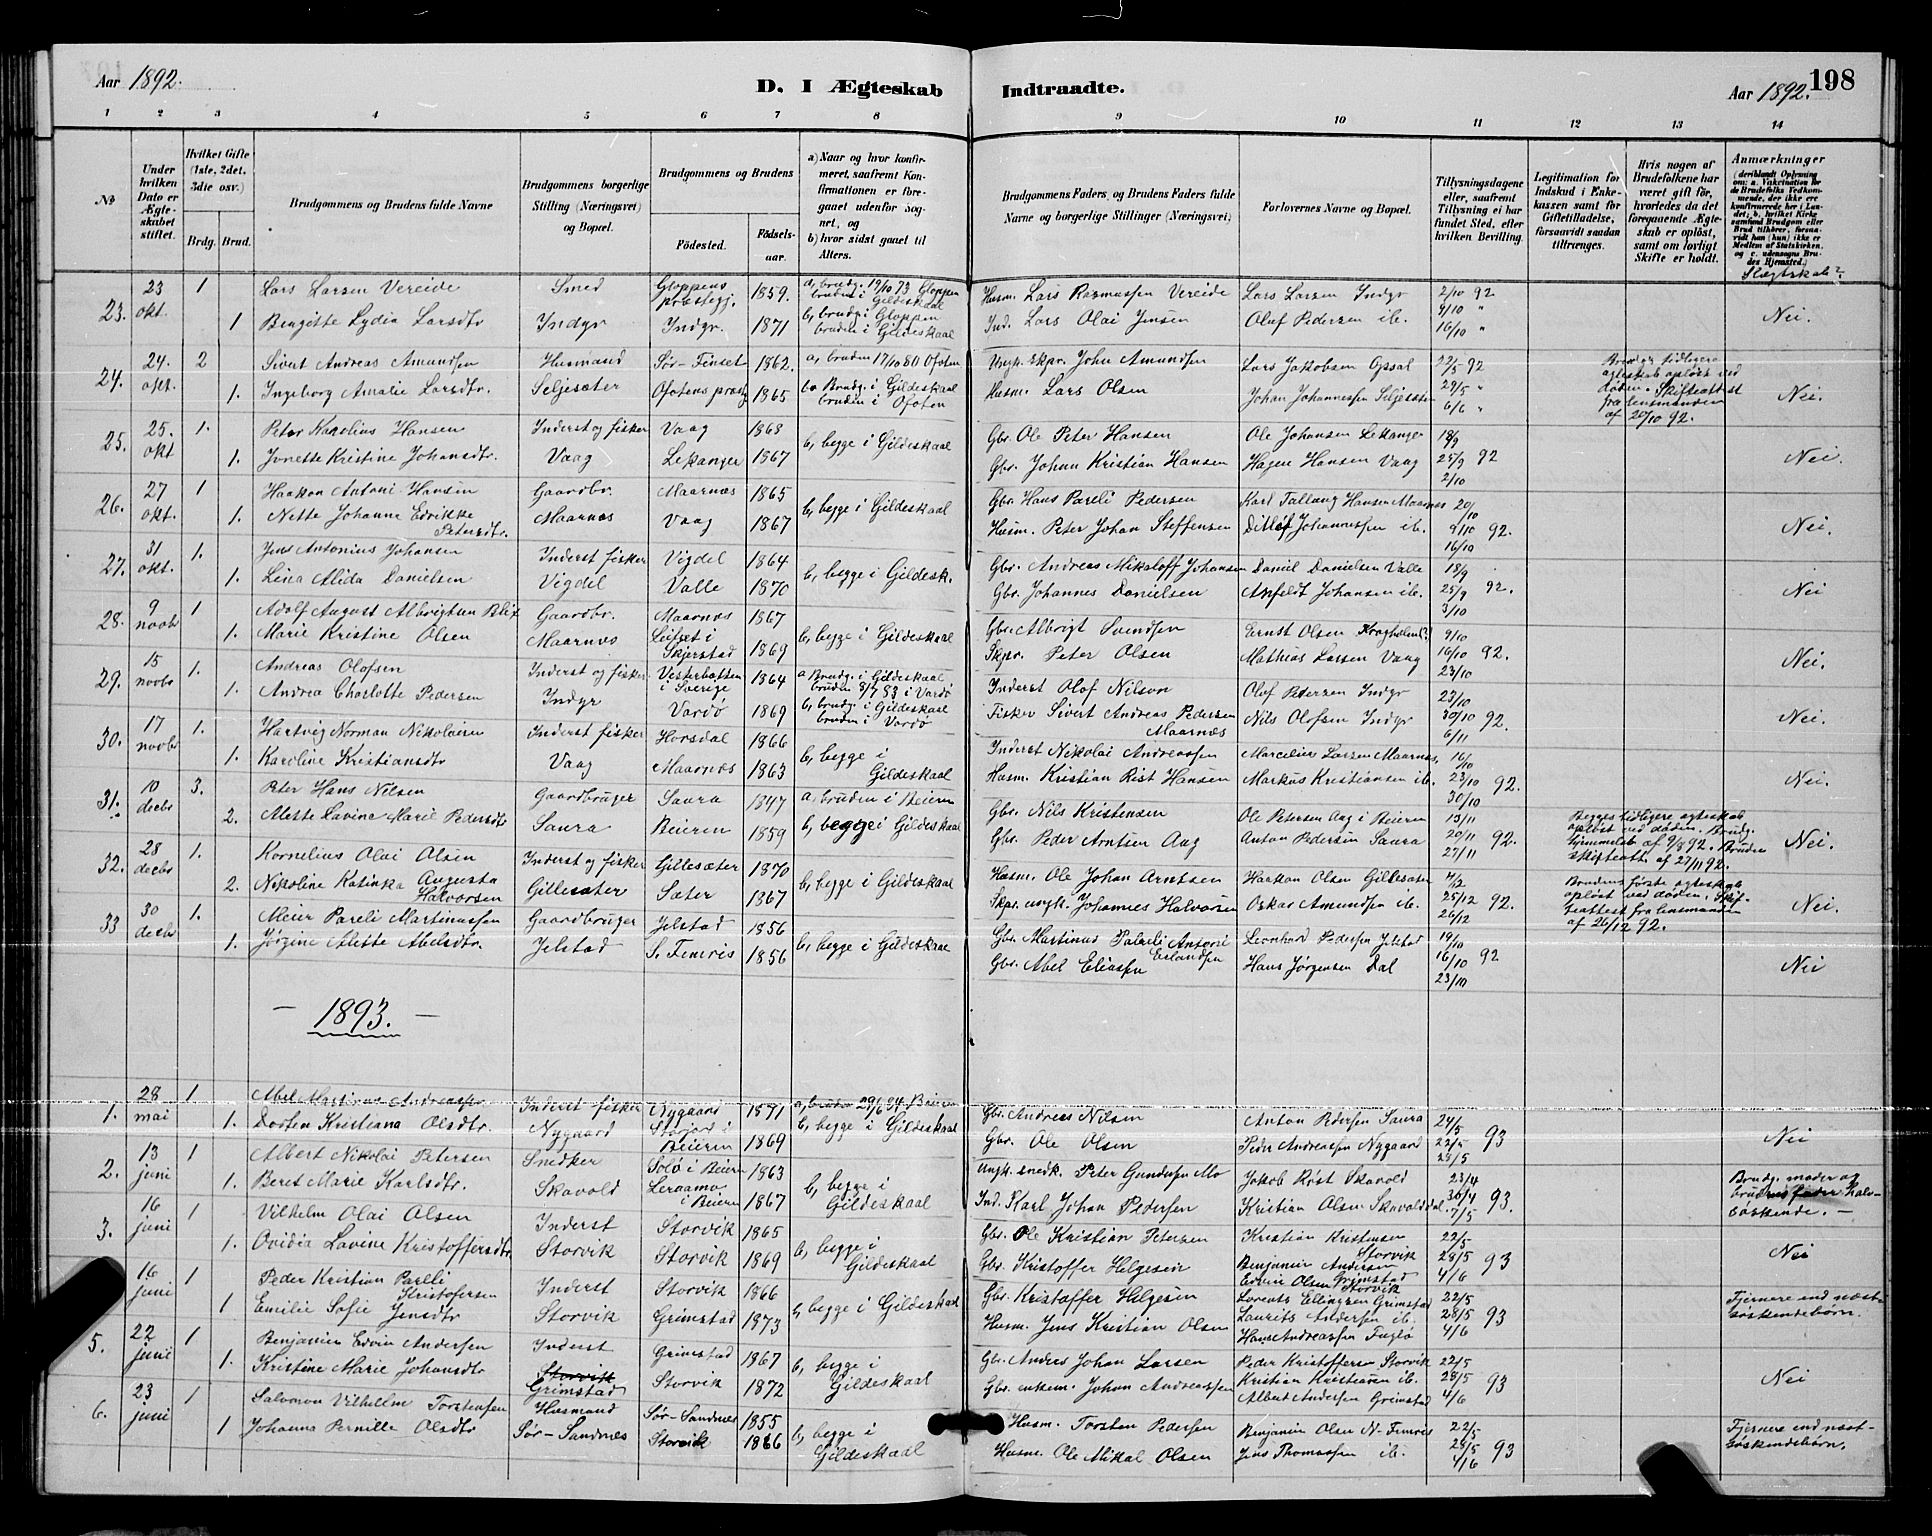 Aar 1892.
D. I Ægteskab Indtraadte.
Aar 1892. 198
1 2 3 4 5 6 7 8 9 10 11 12 13 14
№
Under hvilken Dato er Ægteskabet stiftet.
Hvilket Gifte (1ste, 2det, 3die osv.)
Brdg. Brud.
Brudgommens og Brudens fulde Navne
Brudgommens borgerlige Stilling (Næringsvei) og Bopæl.
Brudgommens og Brudens
Fødested. Fødselsaar.
a) Naar og hvor konfirmeret, saafremt Konfirmationen er foregaaet udenfor Sognet, og
b) hvor sidst gaaet til Alters.
Brudgommens Faders og Brudens Faders fulde Navne og borgerlige Stillinger (Næringsvei)
Forlovernes Navne og Bopæl.
Tillysningsdagene eller, saafremt Tillysning ei har fundet Sted, efter hvilken Bevilling.
Legitimation for Indskud i Enkekassen samt for Giftetilladelse, forsaavidt saadan tiltrænges.
Hvis nogen af Brudefolkene har været gift før, hvorledes da det foregaaende Ægteskab er opløst, samt om lovligt Skifte er holdt.
Anmærkninger (deriblandt Oplysning om: a. Vakcination for de Brudefolks Vedkommende, der ikke ere konfirmerede her i Landet; b. hvilket Kirkesamfund Brudgom eller Brud tilhører, forsaavidt han (hun) ikke er Medlem af Statskirken, og c. udensogns Brudes Hjemsted.)
Slægtskab?
23. 23 okt. 1 Lars Larsen Vereide Smed Gloppens præstegj. 1859. a, brudg. 19/10 73 Gloppen bruden i Gildeskaal Husm. Lars Rasmussen Vereide Lars Larsen Indyr 2/10 92
1 Bergitte Lydia Larsdtr Indyr Indyr. 1871 b, brudg. i Gloppen bruden i Gildeskaal Ind. Lars Olai Jensen Oluf Pedersen ib. 9/10 " 16/10 " Nei.
24. 24. okt. 2 Sivert Andreas Amundsen Husmand Sør-Finset 1862. a, bruden 17/10 80 Ofoten Ungk. skpr. John Amundsen Lars Jakobsen Opsal 22/5 92
1. Ingeborg Amalie Larsdtr. Seljesæter Ofotens præstg 1865 b, Brudg. i Gildeskaal bruden i Ofoten Husm. Lars Olsen Johan Johannessen Seljesæter 29/5 " 6/6 " Brudg. tidligere ægteskab opløst ved døden. Skifteattest fra lensmanden af 20/10 92. Nei.
25. 25. okt 1. Peter Karolius Hansen Inderst og fisker Vaag 1868 b, begge i Gildeskaal Gbr. Ole Peter Hansen Ole Johansen Lekanger 18/9
1. Jonette Kristine Johansdtr. Vaag Lekanger 1867 Gbr. Johan Kristian Hansen Hagen Hansen Vaag 25/9 92 2/10 Nei.
26. 27 okt. 1 Haakon Antoni Hansen Gaardbr. Maarnæs 1865 b, begge i Gildeskaal Gbr. Hans Pareli Pedersen Karl Hansen Maarnæs 20/10
1. Nette Johanna Edvikke Petersdtr. Maarnæs Vaag 1867 Husm. Peter Johan Steffensen Ditlef Johannessen ib. 9/10 92. 16/10 Nei.
27. 31 okt. 1. Jens Antonius Johansen Inderst fisker Vigdel 1864 b, begge i Gildesk. Gbr. Andreas Mikaloff Johansen Daniel Danielsen Valle 18/9
1. Lina Alida Danielsen Vigdel Valle 1870 Gbr. Johannes Danielsen Anfeldt Johansen ib. 25/9 92. 3/10 Nei
28. 9 novbr 1 Adolf August Albrigtsen Blix Gaardbr. Maarnæs 1867 b, begge i Gildeskaal Gbr. Albrigt Svendsen Ernst Olsen 9/10
1. Marie Kristine Olsen Maarnæs Leifset i Skjerstad 1869 Skpr. Peter Olsen Mathias Larsen Vaag 16/10 92. 23/10 Nei.
29. 15 novbr 1. Andreas Olofsen Inderst og fisker Vesterbotten i Sverige 1864 a Brudg. i Gildeskaal bruden 8/7 83 i Vardø Inderst Olof Nilson Olof Pedersen Indyr 23/10
1. Andrea Charlotte Pedersen Indyr Vardø 1869 b, brudg. i Gildeskaal bruden i Vardø Fisker Sivert Andreas Pedersen Maarnæs Nils Olofsen Indyr 30/10 92. 6/11 Nei.
30. 17 novbr 1. Hartvig Norman Nikolaisen Inderst fisker Horsdal 1866 b, begge i Gildeskaal Inderst Nikolai Andreassen Marcelius Larsen Maarnæs 16/10
1. Karoline Kristiansdtr Vaag Maarnæs 1863 Husm. Kristian Rist Hansen Markus Kristiansen ib. 23/10 92. 30/10 Nei.
31. 10 decbr 3. Peter Hans Nilsen Gaardbruger Saura 1847 a, bruden i Beieren Gbr. Nils Kristensen Ole Petersen Aag i Beieren 13/11
2. Alette Lavine Marie Pedersdtr Saura Beieren 1859 b, begge i Gildeskaal Gbr. Peder Arntsen Aag Anton Pedersen Saura 20/11 92. 27/11 Begges tidligere ægteskab opløst ved døden. Brudg. hjemmelab. af 9/8 92. Bruden skifteatt. af 27/11 92. Nei.
32. 28 decbr 1. Kornelius Olai Olsen Inderst og fisker Gillesæter 1870 b, begge i Gildeskaal Husm. Ole Johan Arntsen Haakon Olsen Gillesæter 4/12
2. Nikoline Katinka Augusta Halvorsen Gillesæter Sæter 1867 Skpr. ungk. Johannes Halvorsen Oskar Amundsen ib. 25/12 92. 26/12 Brudens første ægteskab opløst ved døden. Skifteattest fra lensmanden af 26/12 92. Nei.
33 30 decbr 1. Meier Pareli Martinussen Gaardbruger Jelstad 1856 b, begge i Gildeskaal Gbr. Martinus Pareli Antoni Erlandsen Leonhard Pedersen Jelstad 19/10
1. Jørgine Alette Abelsdtr. Jelstad S. Femris 1856 Gbr. Abel Eliassen Hans Jørgensen Dal 16/10 92 23/10 Nei
– 1893. –
1. 28 mai 1 Abel Martinus Andreassen Inderst fisker Nygaard 1871 a, bruden 29/6 84 Beieren Gbr. Andreas Nilsen Anton Pedersen Saura 24/5
1. Dorten Kristiana Olsdtr. Nygaard Storjord i Beieren 1869 b, begge i Gildeskaal Gbr. Ole Olsen Peder Andreassen Nygaard 22/5 93 28/5 Nei
2. 13 juni 1 Albert Nikolai Petersen Snedker Solø i Beieren 1863 b, begge i Gildeskaal Ungk. snedk. Peter Gundersen Mo Jakob Røst Skavold 23/4
1. Beret Marie Karlsdtr. Skavold Leraamo i Beieren 1867 Ind. Karl Johan Pedersen Kristian Olsen Skavolddal. 30/4 93. 7/5 Brudg. moder og brudens fader halvsøskende. –
3. 16 juni 1 Vilhelm Olai Olsen Inderst Storvik 1865 b, begge i Gildeskaal Gbr. Ole Kristian Petersen Kristian Kristensen Storvik 22/5
1. Ovidia Lavine Kristoffersdtr Storvik Storvik 1869 Gbr. Kristoffer Helgesen Benjamin Andersen Grimstad 28/5 93 4/6 Nei
16 juni 1 Peder Kristian Pareli Kristofersen Inderst Storvik 1866 b, begge i Gildeskaal Gbr. Kristoffer Helgesen Edvin Olsen Storvik Lorents Ellingsen Grimstad 22/5
1 Emilie Sofie Jensdtr Storvik Grimstad 1873 Husm. Jens Kristian Olsen Laurits Andersen ib. Hans Andreassen Fuglø 28/5 93 4/6 Fjernere end næstsøskendebørn.
5. 22 juni 1 Benjamin Edvin Andersen Inderst Grimstad 1867 b, begge i Gildeskaal Gbr. Andreas Johan Larsen Peder Kristoffersen Storvik 22/5
1. Kristine Marie Johansdtr Storvik Grimstad Storvik 1872 Gbr. enkem. Johan Andreassen Kristian Kristensen ib. Albert Andersen Grimstad 28/5 93 4/6 Nei
6. 23 juni 1 Salomon Vilhelm Torstensen Husmand Sør-Sandnes 1855 b, begge i Gildeskaal Husm. Torsten Pedersen Benjamin Olsen N-Femris 22/5
1 Johanna Pernille Olsdtr Sør-Sandnæs Storvik 1866 Husm. Ole Mikal Olsen Jens Thomassen ib. 28/5 93 4/6 Fjernere end næstsøskendebørn.